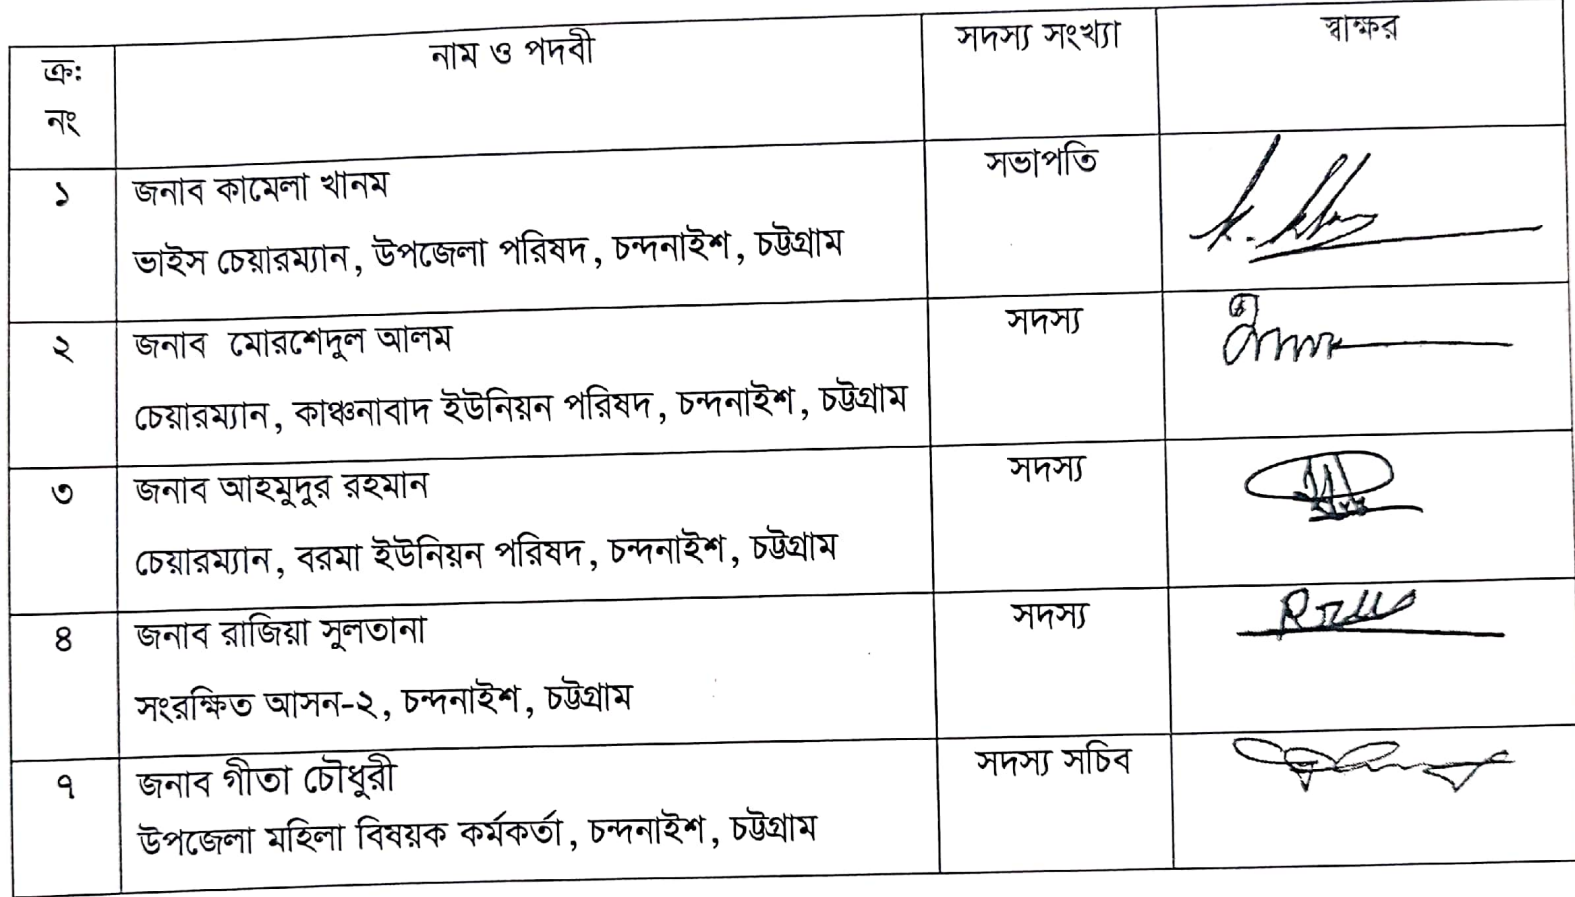 ক্র: নাম ও পদবী সদস্য সংখ্যা স্বাক্ষর
নং
১ জনাব কামেলা খানম সভাপতি
ভাইস চেয়ারম্যান, উপজেলা পরিষদ, চন্দনাইশ, চট্টগ্রাম
২ জনাব মোরশেদুল আলম সদস্য
চেয়ারম্যান, কাঞ্চনাবাদ ইউনিয়ন পরিষদ, চন্দনাইশ, চট্টগ্রাম
৩ জনাব আহমুদুর রহমান সদস্য
চেয়ারম্যান, বরমা ইউনিয়ন পরিষদ, চন্দনাইশ, চট্টগ্রাম
৪ জনাব রাজিয়া সুলতানা সদস্য
সংরক্ষিত আসন-২, চন্দনাইশ, চট্টগ্রাম
৭ জনাব গীতা চৌধুরী সদস্য সচিব
উপজেলা মহিলা বিষয়ক কর্মকর্তা, চন্দনাইশ, চট্টগ্রাম